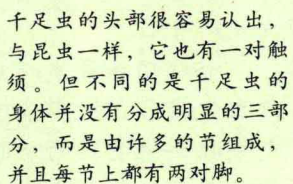 千足虫的头部很容易认出，
与昆虫一样，它也有一对触
须。但不同的是千足虫的
身体并没有分成明显的三部
分，而是由许多的节组成，
并且每节上都有两对脚。